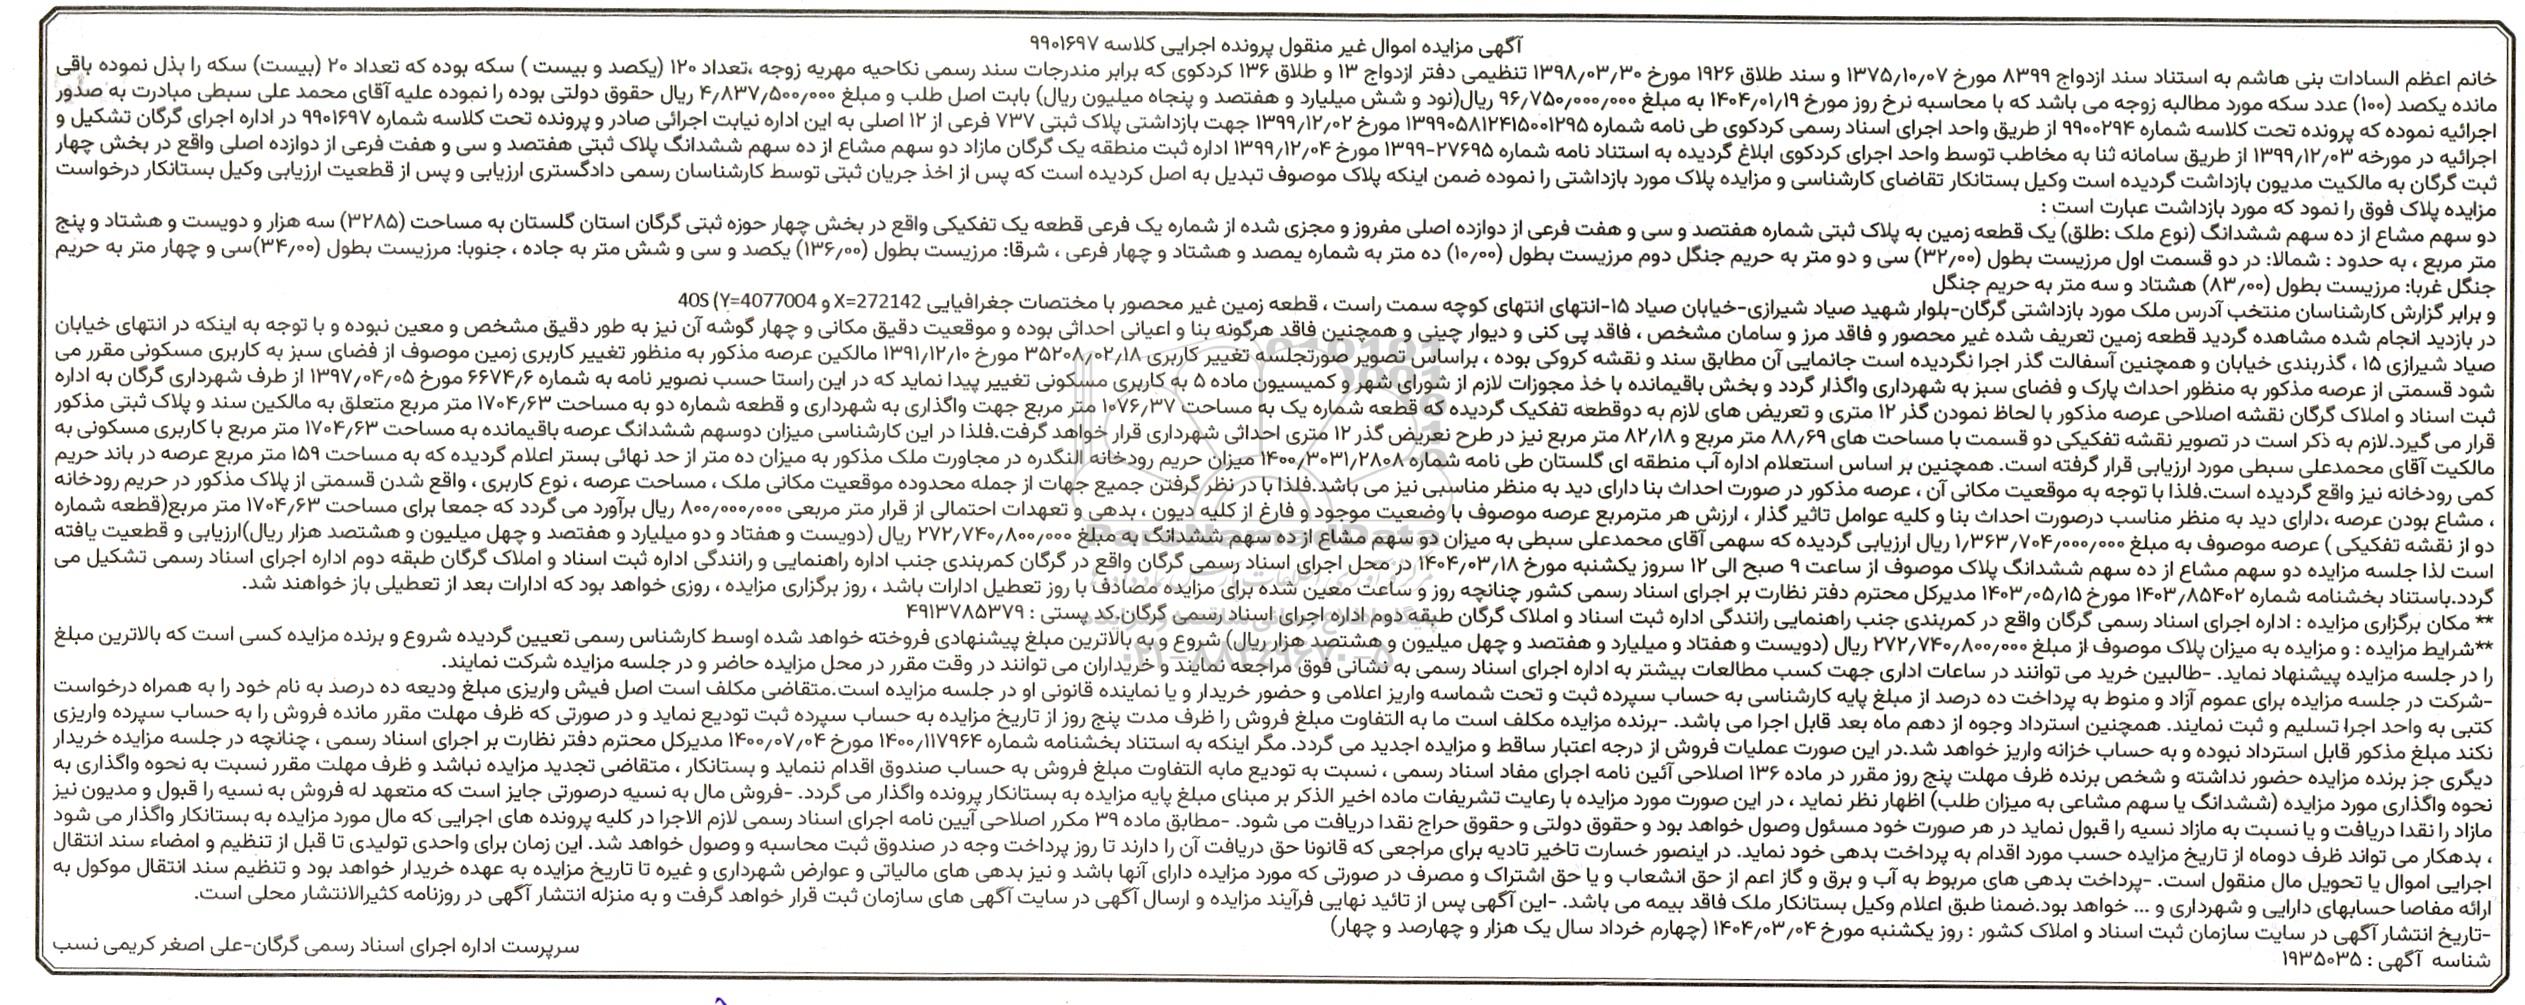 آگهی مزایده اموال غیر منقول پرونده اجرایی کلاسه ۹۹۰۱۶۹۷
خانم اعظم السادات بنی هاشم به استناد سند ازدواج ۸۳۹۹ مورخ ۱۳۷۵٫۱۰٫۰۷ و سند طلاق ۱۹۲۶ مورخ ۱۳۹۸٫۰۳٫۳۰ تنظیمی دفتر ازدواج ۱۳ و طلاق ۱۳۶ کردکوی که برابر مندرجات سند رسمی نکاحیه مهریه زوجه ،تعداد ۱۲۰ (یکصد و بیست ) سکه بوده که تعداد ۲۰ (بیست) سکه را بذل نموده باقی
مانده یکصد (۱۰۰) عدد سکه مورد مطالبه زوجه می باشد که با محاسبه نرخ روز مورخ ۱۴۰۴٫۰۱٫۱۹ به مبلغ ۹۶٫۷۵۰٫۰۰۰٫۰۰۰ ریال(نود و شش میلیارد و هفتصد و پنجاه میلیون ریال) بابت اصل طلب و مبلغ ۴٫۸۳۷٫۵۰۰٫۰۰۰ ریال حقوق دولتی بوده را نموده علیه آقای محمد علی سبطی مبادرت به صدور
اجرائیه نموده که پرونده تحت کلاسه شماره ۹۹۰۰۲۹۴ از طریق واحد اجرای اسناد رسمی کردکوی طی نامه شماره ۱۳۹۹۰۵۸۱۲۴۱۵۰۰۱۲۹۵ مورخ ۱۳۹۹٫۱۲٫۰۲ جهت بازداشتی پلاک ثبتی ۷۳۷ فرعی از ۱۲ اصلی به این اداره نیابت اجرائی صادر و پرونده تحت کلاسه شماره ۹۹۰۱۶۹۷ در اداره اجرای گرگان تشکیل و
اجرائیه در مورخه ۱۳۹۹٫۱۲٫۰۳ از طریق سامانه ثنا به مخاطب توسط واحد اجرای کردکوی ابلاغ گردیده به استناد نامه شماره ۲۷۶۹۵-۱۳۹۹ مورخ ۱۳۹۹٫۱۲٫۰۴ اداره ثبت منطقه یک گرگان مازاد دو سهم مشاع از ده سهم ششدانگ پلاک ثبتی هفتصد و سی و هفت فرعی از دوازده اصلی واقع در بخش چهار
ثبت گرگان به مالکیت مدیون بازداشت گردیده است وکیل بستانکار تقاضای کارشناسی و مزایده پلاک مورد بازداشتی را نموده ضمن اینکه پلاک موصوف تبدیل به اصل کردیده است که پس از اخذ جریان ثبتی توسط کارشناسان رسمی دادگستری ارزیابی و پس از قطعیت ارزیابی وکیل بستانکار درخواست
مزایده پلاک فوق را نمود که مورد بازداشت عبارت است :
دو سهم مشاع از ده سهم ششدانگ (نوع ملک :طلق) یک قطعه زمین به پلاک ثبتی شماره هفتصد و سی و هفت فرعی از دوازده اصلی مفروز و مجزی شده از شماره یک فرعی قطعه یک تفکیکی واقع در بخش چهار حوزه ثبتی گرگان استان گلستان به مساحت (۳۲۸۵) سه هزار و دویست و هشتاد و پنج
متر مربع ، به حدود : شمالا: در دو قسمت اول مرزیست بطول (۳۲٫۰۰) سی و دو متر به حریم جنگل دوم مرزیست بطول (۱۰٫۰۰) ده متر به شماره یمصد و هشتاد و چهار فرعی ، شرقا: مرزیست بطول (۱۳۶٫۰۰) یکصد و سی و شش متر به جاده ، جنوبا: مرزیست بطول (۳۴٫۰۰)سی و چهار متر به حریم
جنگل غربا: مرزیست بطول (۸۳٫۰۰) هشتاد و سه متر به حریم جنگل
و برابر گزارش کارشناسان منتخب آدرس ملک مورد بازداشتی گرگان-بلوار شهید صیاد شیرازی-خیابان صیاد ۱۵-انتهای انتهای کوچه سمت راست ، قطعه زمین غیر محصور با مختصات جغرافیایی X=272142 و Y=4077004) 40S
در بازدید انجام شده مشاهده گردید قطعه زمین تعریف شده غیر محصور و فاقد مرز و سامان مشخص ، فاقد پی کنی و دیوار چینی و همچنین فاقد هرگونه بنا و اعیانی احداثی بوده و موقعیت دقیق مکانی و چهار گوشه آن نیز به طور دقیق مشخص و معین نبوده و با توجه به اینکه در انتهای خیابان
صیاد شیرازی ۱۵ ، گذربندی خیابان و همچنین آسفالت گذر اجرا نگردیده است جانمایی آن مطابق سند و نقشه کروکی بوده ، براساس تصویر صورتجلسه تغییر کاربری ۳۵۲۰۸٫۰۲٫۱۸ مورخ ۱۳۹۱٫۱۲٫۱۰ مالکین عرصه مذکور به منظور تغییر کاربری زمین موصوف از فضای سبز به کاربری مسکونی مقرر می
شود قسمتی از عرصه مذکور به منظور احداث پارک و فضای سبز به شهرداری واگذار گردد و بخش باقیمانده با خذ مجوزات لازم از شورای شهر و کمیسیون ماده ۵ به کاربری مسکونی تغییر پیدا نماید که در این راستا حسب نصویر نامه به شماره ۶۶۷۴٫۶ مورخ ۱۳۹۷٫۰۴٫۰۵ از طرف شهرداری گرگان به اداره
ثبت اسناد و املاک گرگان نقشه اصلاحی عرصه مذکور با لحاظ نمودن گذر ۱۲ متری و تعریض های لازم به دوقطعه تفکیک گردیده که قطعه شماره یک به مساحت ۱۰۷۶٫۳۷ متر مربع جهت واگذاری به شهرداری و قطعه شماره دو به مساحت ۱۷۰۴٫۶۳ متر مربع متعلق به مالکین سند و پلاک ثبتی مذکور
قرار می گیرد.لازم به ذکر است در تصویر نقشه تفکیکی دو قسمت با مساحت های ۸۸٫۶۹ متر مربع و ۸۲٫۱۸ متر مربع نیز در طرح تعریض گذر ۱۲ متری احداثی شهرداری قرار خواهد گرفت.فلذا در این کارشناسی میزان دوسهم ششدانگ عرصه باقیمانده به مساحت ۱۷۰۴٫۶۳ متر مربع با کاربری مسکونی به
مالکیت آقای محمدعلی سبطی مورد ارزیابی قرار گرفته است. همچنین بر اساس استعلام اداره آب منطقه ای گلستان طی نامه شماره ۱۴۰۰٫۳۰۳۱٫۲۸۰۸ میزان حریم رودخانه النگدره در مجاورت ملک مذکور به میزان ده متر از حد نهائی بستر اعلام گردیده که به مساحت ۱۵۹ متر مربع عرصه در باند حریم
کمی رودخانه نیز واقع گردیده است.فلذا با توجه به موقعیت مکانی آن ، عرصه مذکور در صورت احداث بنا دارای دید به منظر مناسبی نیز می باشد.فلذا با در نظر گرفتن جمیع جهات از جمله محدوده موقعیت مکانی ملک ، مساحت عرصه ، نوع کاربری ، واقع شدن قسمتی از پلاک مذکور در حریم رودخانه
، مشاع بودن عرصه ،دارای دید به منظر مناسب درصورت احداث بنا و کلیه عوامل تاثیر گذار ، ارزش هر مترمربع عرصه موصوف با وضعیت موجود و فارغ از کلیه دیون ، بدهی و تعهدات احتمالی از قرار متر مربعی ۸۰۰٫۰۰۰٫۰۰۰ ریال برآورد می گردد که جمعا برای مساحت ۱۷۰۴٫۶۳ متر مربع(قطعه شماره
دو از نقشه تفکیکی ) عرصه موصوف به مبلغ ۱٫۳۶۳٫۷۰۴٫۰۰۰٫۰۰۰ ریال ارزیابی گردیده که سهمی آقای محمدعلی سبطی به میزان دو سهم مشاع از ده سهم ششدانگ به مبلغ ۲۷۲٫۷۴۰٫۸۰۰٫۰۰۰ ریال (دویست و هفتاد و دو میلیارد و هفتصد و چهل میلیون و هشتصد هزار ریال)ارزیابی و قطعیت یافته
است لذا جلسه مزایده دو سهم مشاع از ده سهم ششدانگ پلاک موصوف از ساعت ۹ صبح الی ۱۲ سروز یکشنبه مورخ ۱۴۰۴٫۰۳٫۱۸ در محل اجرای اسناد رسمی گرگان واقع در گرگان کمربندی جنب اداره راهنمایی و رانندگی اداره ثبت اسناد و املاک گرگان طبقه دوم اداره اجرای اسناد رسمی تشکیل می
گردد.باستناد بخشنامه شماره ۱۴۰۳٫۸۵۴۰۲ مورخ ۱۴۰۳٫۰۵٫۱۵ مدیرکل محترم دفتر نظارت بر اجرای اسناد رسمی کشور چنانچه روز و ساعت معین شده برای مزایده مصادف با روز تعطیل ادارات باشد ، روز برگزاری مزایده ، روزی خواهد بود که ادارات بعد از تعطیلی باز خواهند شد.
** مکان برگزاری مزایده : اداره اجرای اسناد رسمی گرگان واقع در کمربندی جنب راهنمایی رانندگی اداره ثبت اسناد و املاک گرگان طبقه دوم اداره اجرای اسناد رسمی گرگان.کد پستی : ۴۹۱۳۷۸۵۳۷۹
**شرایط مزایده : و مزایده به میزان پلاک موصوف از مبلغ ۲۷۲٫۷۴۰٫۸۰۰٫۰۰۰ ریال (دویست و هفتاد و میلیارد و هفتصد و چهل میلیون و هشتصد هزار ریال) شروع و به بالاترین مبلغ پیشنهادی فروخته خواهد شده اوسط کارشناس رسمی تعیین گردیده شروع و برنده مزایده کسی است که بالاترین مبلغ
را در جلسه مزایده پیشنهاد نماید. -طالبین خرید می توانند در ساعات اداری جهت کسب مطالعات بیشتر به اداره اجرای اسناد رسمی به نشانی فوق مراجعه نمایند و خریداران می توانند در وقت مقرر در محل مزایده حاضر و در جلسه مزایده شرکت نمایند.
-شرکت در جلسه مزایده برای عموم آزاد و منوط به پرداخت ده درصد از مبلغ پایه کارشناسی به حساب سپرده ثبت و تحت شماسه واریز اعلامی و حضور خریدار و یا نماینده قانونی او در جلسه مزایده است.متقاضی مکلف است اصل فیش واریزی مبلغ ودیعه ده درصد به نام خود را به همراه درخواست
کتبی به واحد اجرا تسلیم و ثبت نمایند. همچنین استرداد وجوه از دهم ماه بعد قابل اجرا می باشد. -برنده مزایده مکلف است ما به التفاوت مبلغ فروش را ظرف مدت پنج روز از تاریخ مزایده به حساب سپرده ثبت تودیع نماید و در صورتی که ظرف مهلت مقرر مانده فروش را به حساب سپرده واریزی
نکند مبلغ مذکور قابل استرداد نبوده و به حساب خزانه واریز خواهد شد.در این صورت عملیات فروش از درجه اعتبار ساقط و مزایده اجدید می گردد. مگر اینکه به استناد بخشنامه شماره ۱۴۰۰٫۱۱۷۹۶۴ مورخ ۱۴۰۰٫۰۷٫۰۴ مدیرکل محترم دفتر نظارت بر اجرای اسناد رسمی ، چنانچه در جلسه مزایده خریدار
دیگری جز برنده مزایده حضور نداشته و شخص برنده ظرف مهلت پنج روز مقرر در ماده ۱۳۶ اصلاحی آئین نامه اجرای مفاد اسناد رسمی ، نسبت به تودیع مابه التفاوت مبلغ فروش به حساب صندوق اقدام ننماید و بستانکار ، متقاضی تجدید مزایده نباشد و ظرف مهلت مقرر نسبت به نحوه واگذاری به
نحوه واگذاری مورد مزایده (ششدانگ یا سهم مشاعی به میزان طلب) اظهار نظر نماید ، در این صورت مورد مزایده با رعایت تشریفات ماده اخیر الذکر بر مبنای مبلغ پایه مزایده به بستانکار پرونده واگذار می گردد. -فروش مال به نسیه درصورتی جایز است که متعهد له فروش به نسیه را قبول و مدیون نیز
مازاد را نقدا دریافت و یا نسبت به مازاد نسیه را قبول نماید در هر صورت خود مسئول وصول خواهد بود و حقوق دولتی و حقوق حراج نقدا دریافت می شود. -مطابق ماده ۳۹ مکرر اصلاحی آیین نامه اجرای اسناد رسمی لازم الاجرا در کلیه پرونده های اجرایی که مال مورد مزایده به بستانکار واگذار می شود
، بدهکار می تواند ظرف دوماه از تاریخ مزایده حسب مورد اقدام به پرداخت بدهی خود نماید. در اینصور خسارت تاخیر تادیه برای مراجعی که قانونا حق دریافت آن را دارند تا روز پرداخت وجه در صندوق ثبت محاسبه و وصول خواهد شد. این زمان برای واحدی تولیدی تا قبل از تنظیم و امضاء سند انتقال
اجرایی اموال یا تحویل مال منقول است. -پرداخت بدهی های مربوط به آب و برق و گاز اعم از حق انشعاب و یا حق اشتراک و مصرف در صورتی که مورد مزایده دارای آنها باشد و نیز بدهی های مالیاتی و عوارض شهرداری و غیره تا تاریخ مزایده به عهده خریدار خواهد بود و تنظیم سند انتقال موکول به
ارائه مفاصا حسابهای دارایی و شهرداری و ... خواهد بود.ضمنا طبق اعلام وکیل بستانکار ملک فاقد بیمه می باشد. -این آگهی پس از تائید نهایی فرآیند مزایده و ارسال آگهی در سایت آگهی های سازمان ثبت قرار خواهد گرفت و به منزله انتشار آگهی در روزنامه کثیرالانتشار محلی است.
-تاریخ انتشار آگهی در سایت سازمان ثبت اسناد و املاک کشور : روز یکشنبه مورخ ۱۴۰۴٫۰۳٫۰۴ (چهارم خرداد سال یک هزار و چهارصد و چهار)
سرپرست اداره اجرای اسناد رسمی گرگان-علی اصغر کریمی نسب
شناسه آگهی : ۱۹۳۵۰۳۵